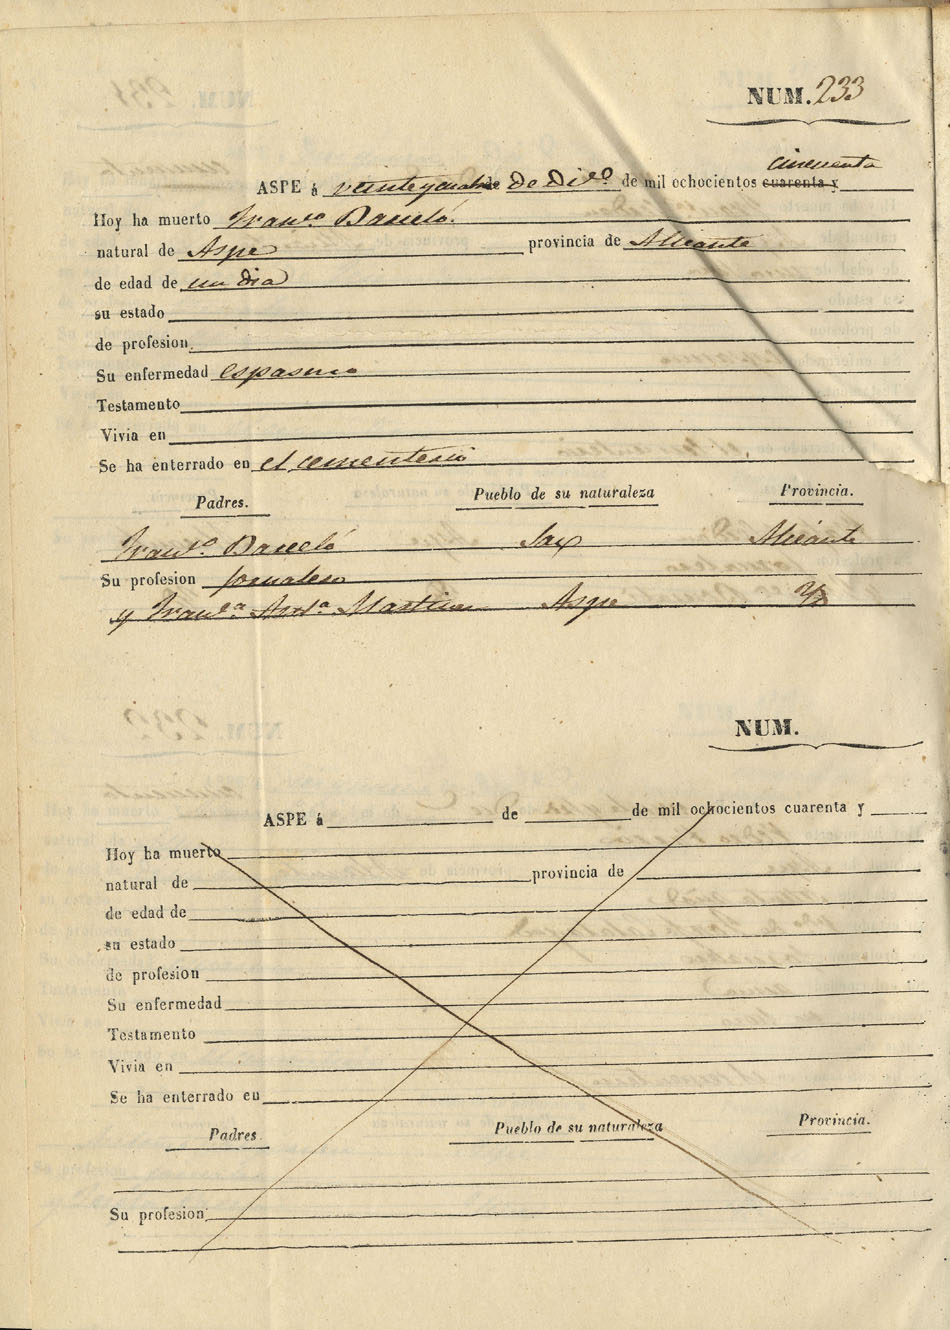 NUM. 233
cincuenta
ASPE á veinte y cuatro de Di.e de mil ochocientos cuarenta y
Hoy ha muerto Fran.co Barceló.
natural de Aspe provincia de Alicante
de edad de un dia
su estado
de profesion
Su enfermedad espasmo
Testamento
Vivia en
Se ha enterrado en el cementerio
Padres. Pueblo de su naturaleza Provincia.
Fran.co Barceló Sax Alicante
Su profesion jornalero
y Fran.ca Ant.a Martinez Aspe
NUM.
ASPE á de de mil ochocientos cuarenta y
Hoy ha muerto
natural de provincia de
de edad de
su estado
de profesion
Su enfermedad
Testamento
Vivia en
Se ha enterrado en
Padres. Pueblo de su naturaleza Provincia.
Su profesion